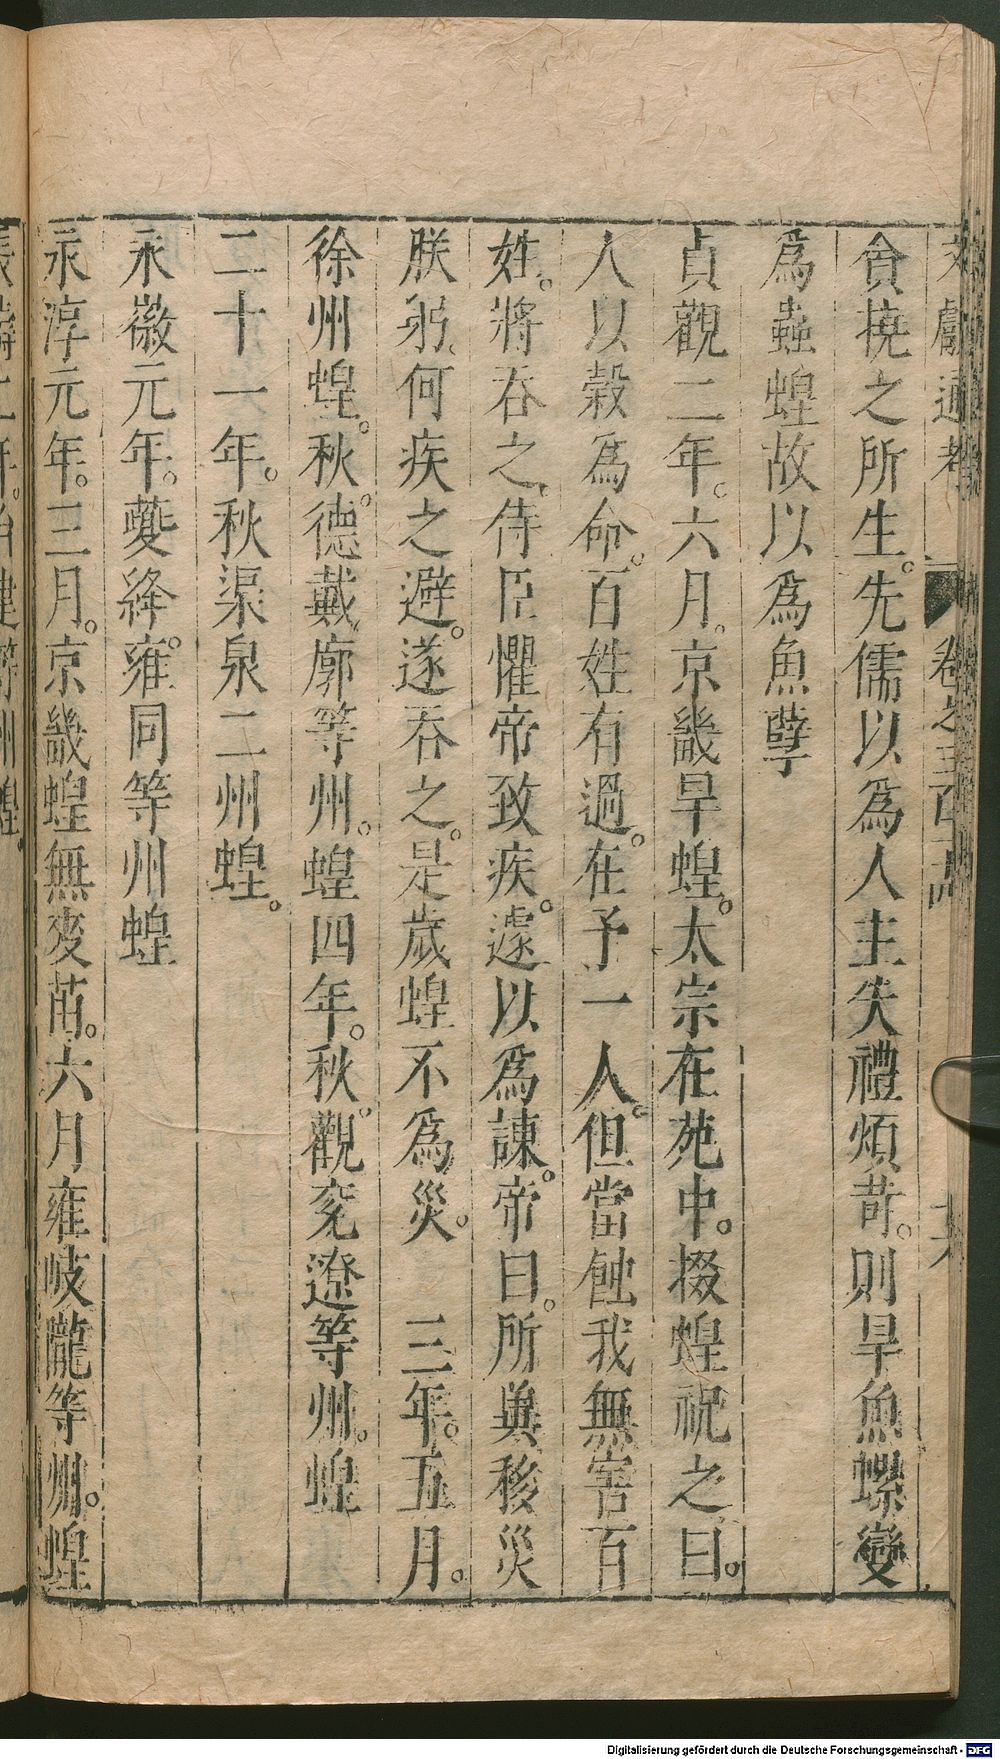 文獻通考 卷之三百十四
貪撓之所生。先儒以爲人主失禮煩苛。則旱魚螺變
爲蟲蝗故以爲魚孽
貞觀二年。六月。京畿旱蝗。太宗在苑中。掇蝗祝之曰。
人以穀爲命。百姓有過。在予一人。但當蝕我無害百
姓。將呑之。侍臣懼帝致疾。遽以爲諫。帝曰。所兾移災
朕躬。何疾之避。遂呑之。是歲蝗不爲災。 三年。五月。
徐州蝗。秋。德戴廓等州。蝗四年。秋。觀兖遼等州。蝗
二十一年。秋渠泉二州蝗。
永徽元年。夔絳。雍同等州蝗
永淳元年。三月。京畿蝗無麥苗。六月雍岐隴等州。蝗
建等州蝗。
Digitalisierung gefördert durch die Deutsche Forschungsgemeinschaft - DFG